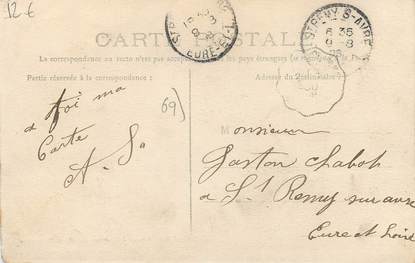 12 €
CARTE POSTALE
La correspondance au recto n'est pas acceptée
Partie réservée à la correspondance :
Adresse du Destinataire
ST REMY S-AVRE
6 35
9 -8
EURE-ET-L
à toi ma
Carte
A. S.
69)
Monsieur
Gaston Chabot
à St Remy sur avre
Eure et Loire